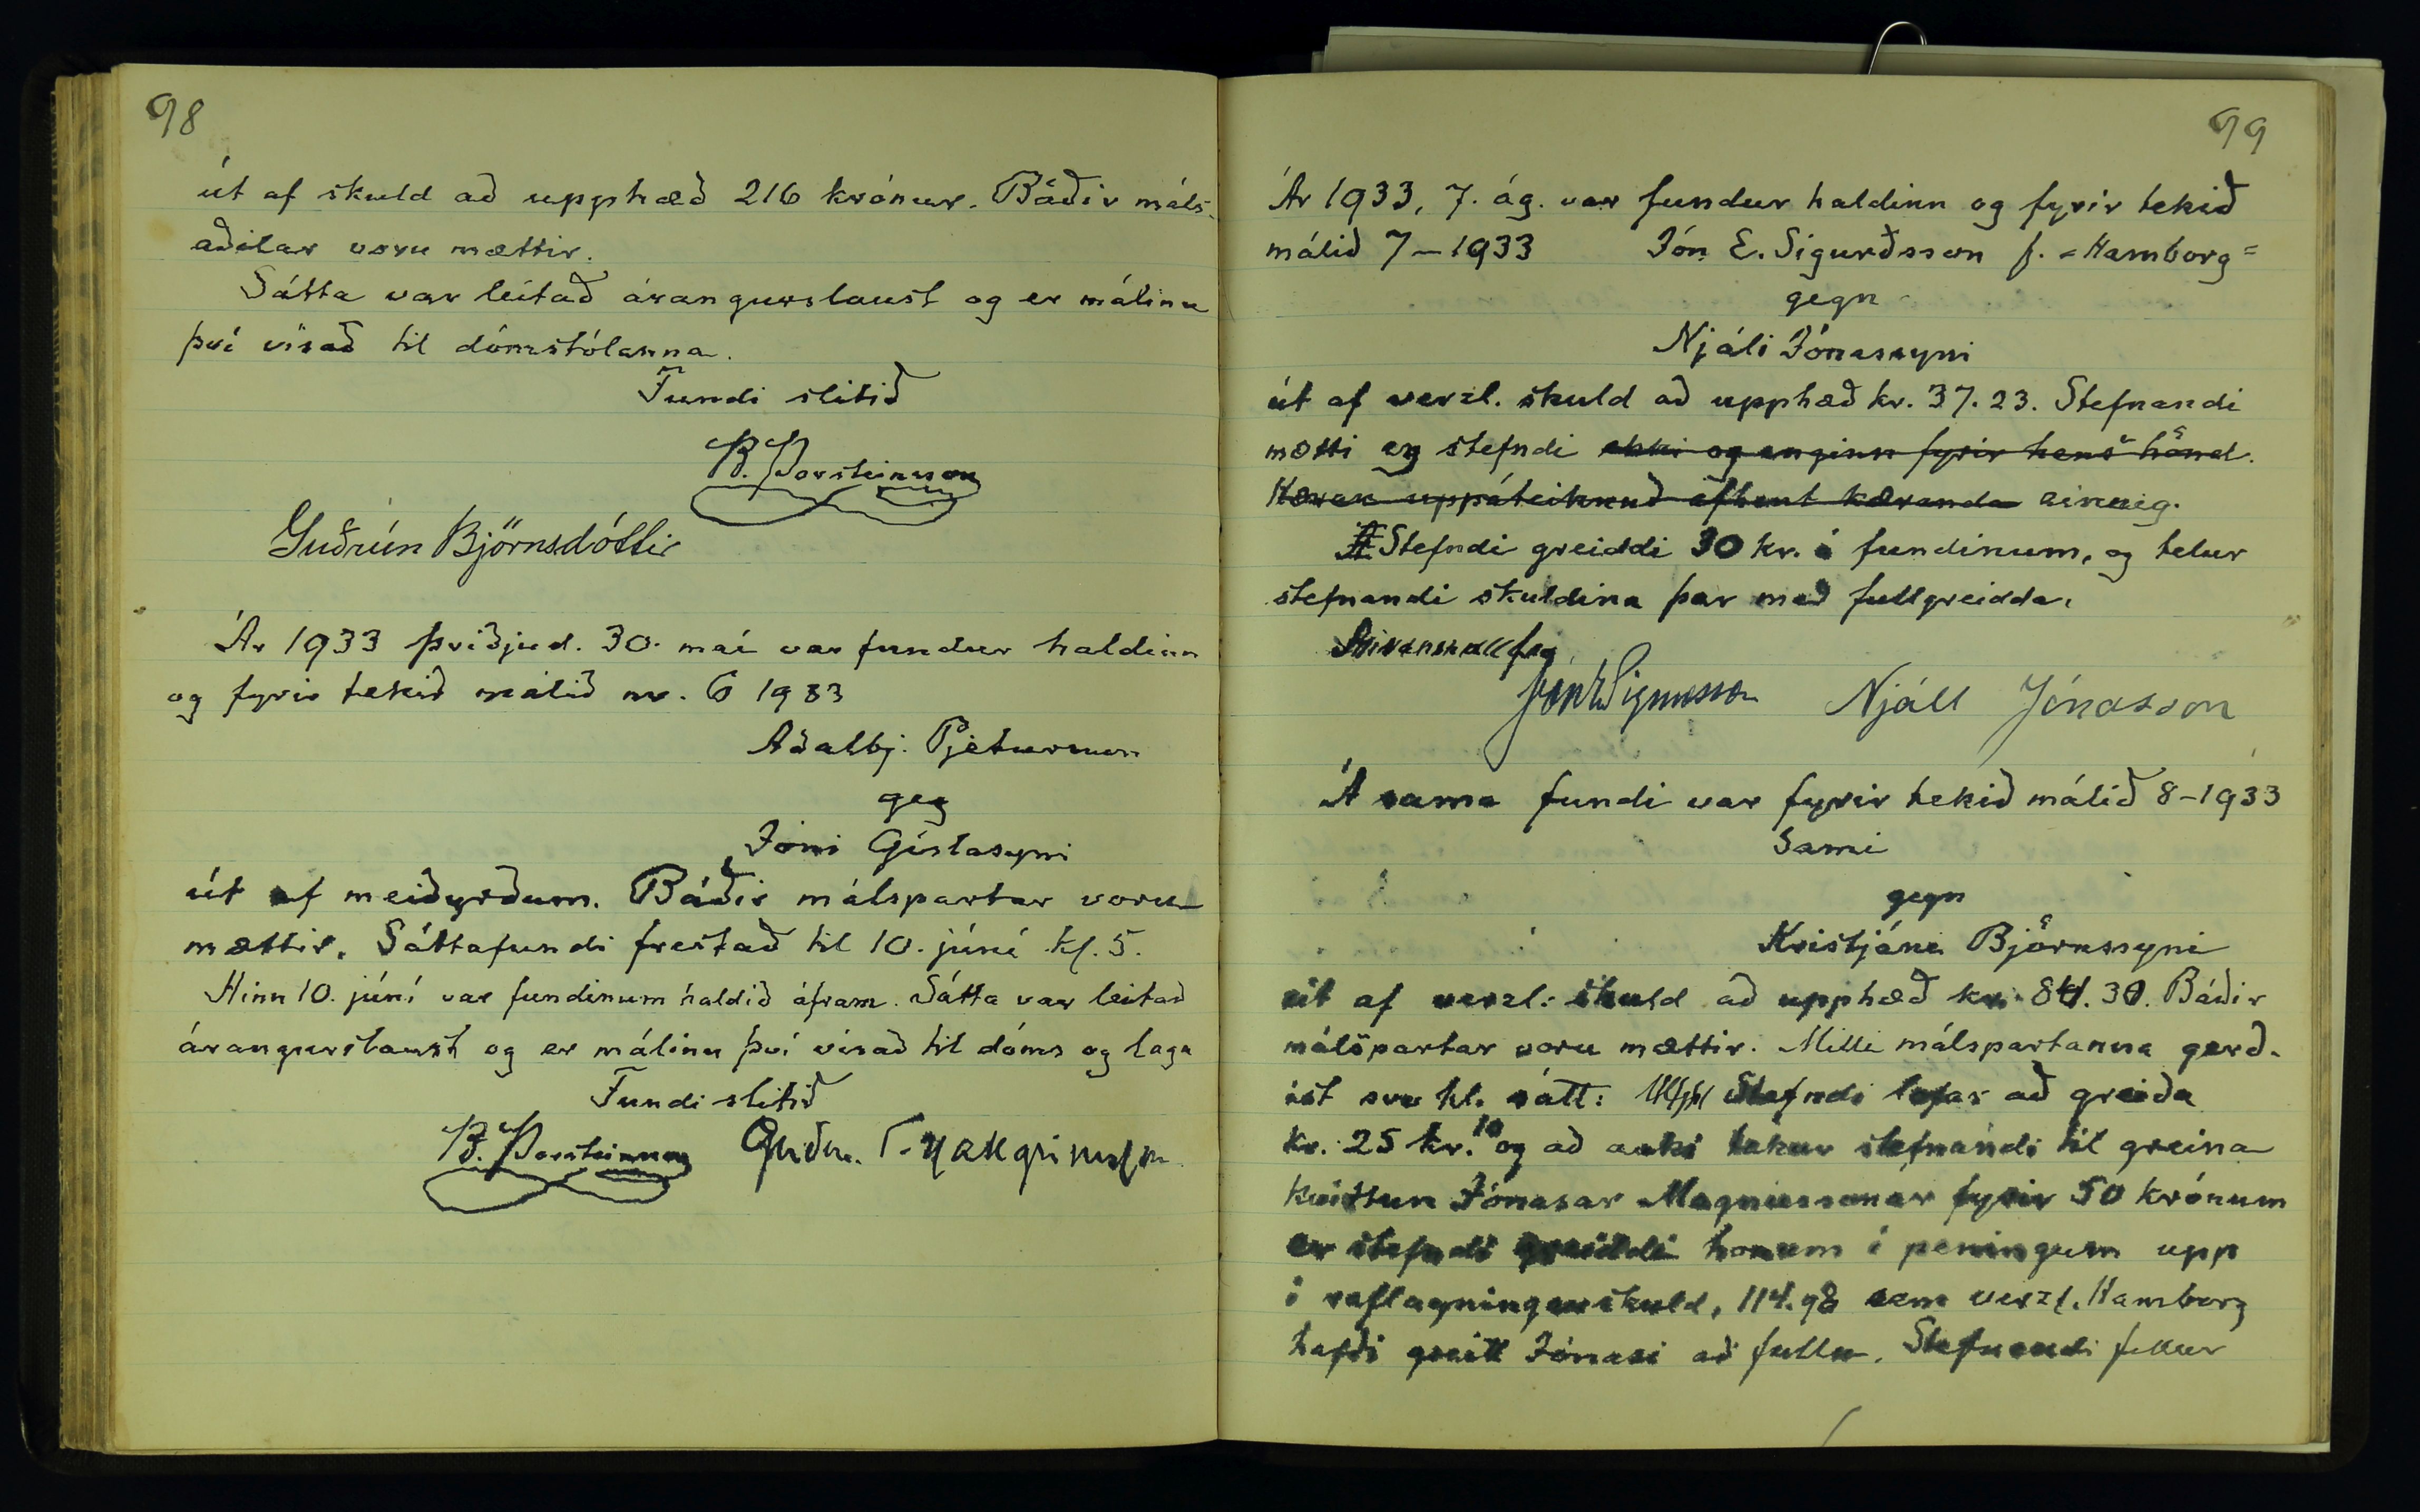 98
út af skuld að upphæð 216 krónur. Báðir máls-
aðilar voru mættir.
Sátta var leitað árangurslaust og er málinu
því vísað til dómstólanna.
Fundi slitið
B. Þorsteinsson
Guðrún Björnsdóttir
Ár 1933 þriðjud. 30. maí var fundur haldinn
og fyrir tekið málið nr. 6 1933
Aðalbj. Pjetursson
geg
Jóni Gíslasyni
út af meiðyrðum. Báðir málspartar voru
mættir. Sáttafundi frestað til 10. júní kl. 5.
Hinn 10. júní var fundinum haldið áfram. Sátta var leitað
árangurslaust og er málinu því vísað til dóms og laga
Fundi slitið
B. Þorsteinsson Guðm. T. Hallgrímsson
99
Ár 1933, 7. ág. var fundur haldinn og fyrir tekið
málið 7-1933 Jón E. Sigurðsson f. "Hamborg"
gegn
Njáli Jónassyni
út af verzl. skuld að upphæð kr. 37.23. Stefnandi
mætti og stefndi ekki og enginn fyrir hans hönd.
Kæran uppáteiknuð afhent kæranda einnig.
Stefndi greiddi 30 kr. á fundinum, og telur
stefnandi skuldina þar með fullgreidda.
Jón E Sigurðsson Njáll Jónasson
Á sama fundi var fyrir tekið málið 8-1933
Sami
gegn
Kristjáni Björnssyni
út af verzl. skuld að upphæð kr. Báðir
málspartar voru mættir. Milli málspartanna gerð-
ist svo hl. sátt: Stefndi lofar að greiða
kr. 25 kr. og að auki tekur stefnandi til greina
kvittun Jónasar Magnússonar fyrir 50 krónum
er stefndi greiddi honum í peningum upp
í raflagningarskuld, 114.98 sem verzl. Hamborg
hafði greitt Jónasi að fullu. Stefnandi fellur